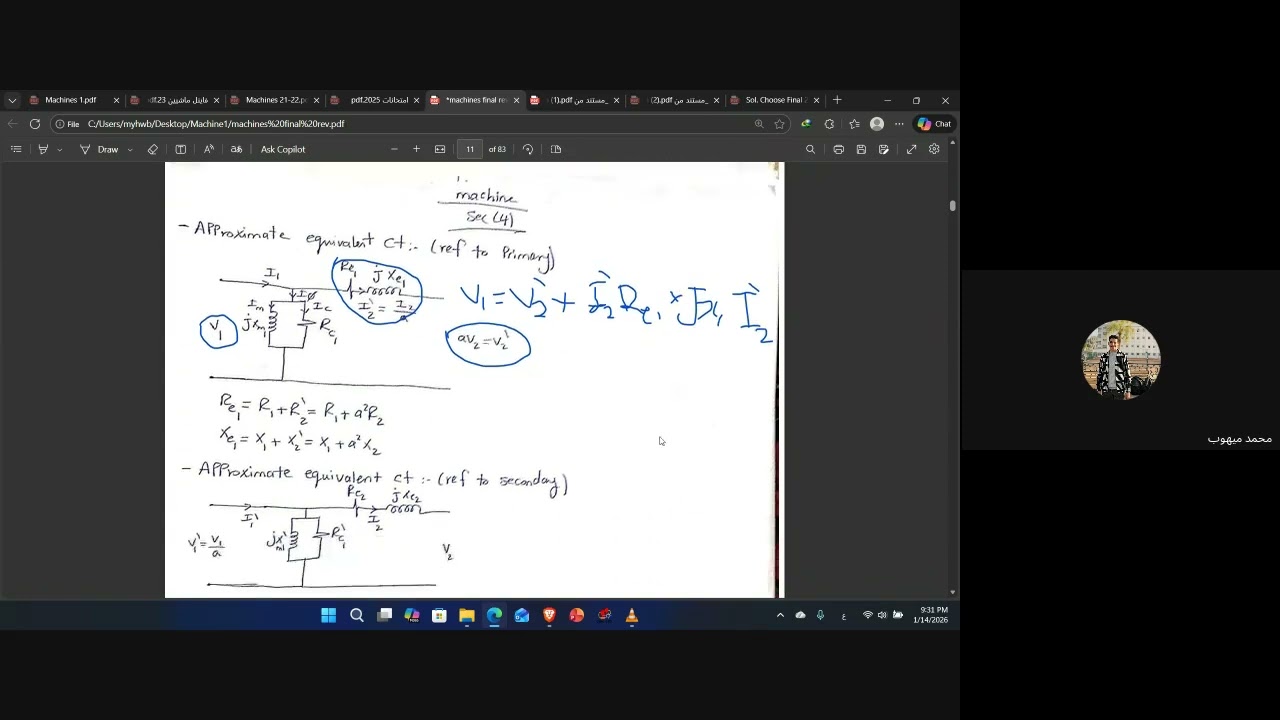 Machines 1.pdf
فاينل ماشيين 23.pdf
Machines 21-22.p
امتحانات 2025.pdf
*machines final re
مستند من_ (1).pdf
مستند من_ (2).pdf
Sol. Choose Final 2
File C:/Users/myhwb/Desktop/Machine1/machines%20final%20rev.pdf
Chat
Draw
Ask Copilot
11 of 83
machine
sec (4)
- APProximate equivalent ct:- (ref to Primary)
I₁
Re₁
jXe₁
Iø
Im
Ic
I₂` = I₂/a
jXm₁
Rc₁
V₁
V₁ = V₂` + I₂` Re₁ + jX₁ I₂`
aV₂ = V₂`
Re₁ = R₁ + R₂` = R₁ + a²R₂
Xe₁ = X₁ + X₂` = X₁ + a²X₂
- APProximate equivalent ct :- (ref to seconday)
Re₂
jXe₂
I₁`
I₂
V₁` = V₁/a
jXm₁`
Rc₁`
V₂
محمد ميهوب
9:31 PM
1/14/2026